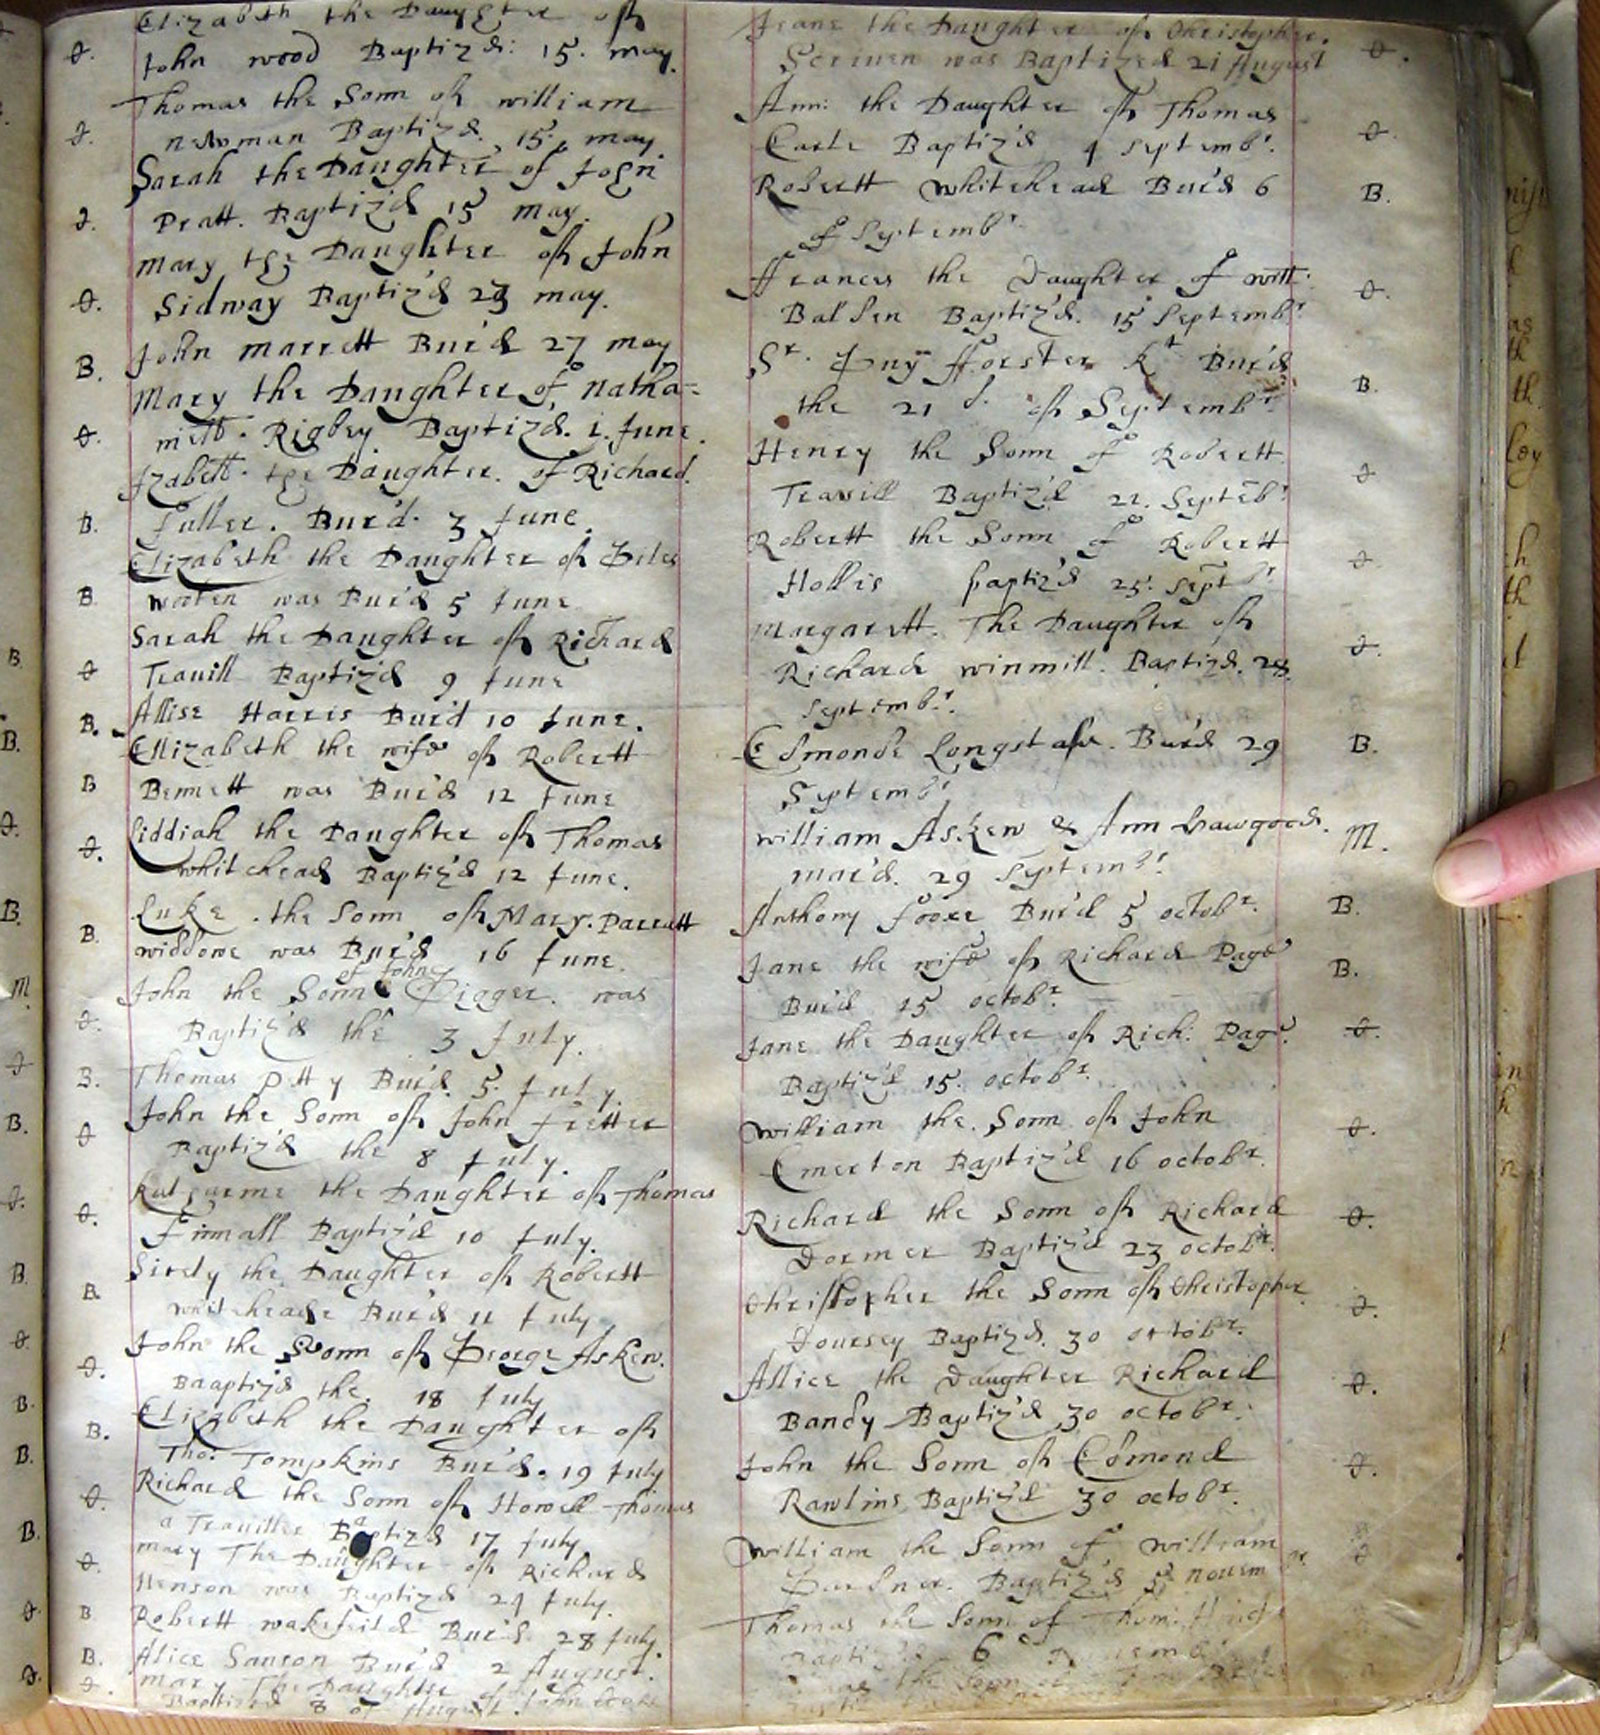 Elizabeth the Daughter of
John wood Baptiz'd: 15. may.
Thomas the Sonn of william
newman Baptiz'd. 15. may.
Sarah the Daughter of John
Pratt. Baptiz'd 15 may.
mary the Daughter of John
Sidway Baptiz'd 23 may.
B. John marrett Bur'd 27 may
Mary the Daughter of Natha-
niell. Rigbey Baptiz'd. 1. June.
Izabell. the Daughter. of Richard.
B. Fuller. Bur'd. 3 June.
Elizabeth the Daughter of Giles
B. wooten was Bur'd 5 June
Sarah the Daughter of Richard
Travill Baptiz'd 9 June
B. Allise Harris Bur'd 10 June.
Ellizabeth the wife of Robertt
B Bennett was Bur'd 12 June
Liddiah the Daughter of Thomas
whitehead Baptiz'd 12 June.
Luke. the Sonn of Mary. Parratt
B. widdowe was Bur'd 16 June.
of John
John the Sonn Digger. was
Baptiz'd the 3 July.
B. Thomas Petty Bur'd. 5. July.
John the Sonn of John Fretter
Baptiz'd the 8 July.
the Daughter of Thomas
Baptiz'd 10 July.
the Daughter of Robertt
B. whiteheade Bur'd 11 July
John the Sonn of George Asken.
Baaptiz'd the. 18 July
Elizabeth the Daughter of
B. Tho: Tompkins Bur'd. 19 July
Richard the Sonn of Howell Thomas
a Traviller Baptiz'd 17 July
mary The Daughter of Richard
Henson was Baptiz'd 24 July.
B Robertt wakefeild Bur'd. 28 July.
B. Alice Sanson Bur'd 2 August.
mary The Daughter of John
Baptized 8 of August.
Jeane the Daughter of Christopher.
Scriven was Baptized 21 August
Ann: the Daughter of Thomas
Carte Baptiz'd 4 Septembr.
Robertt whitehead Bur'd 6 B.
of Septembr.
ffrances the Daughter of will:
Balden Baptiz'd. 15 Septembr
Sr. Guy fforster Kt Bur'd
the 21 d. of Septembr B.
Henry the Sonn of Robertt
Travill Baptiz'd 22. Septebr
Robertt the Sonn of Robertt
Hollis baptiz'd 25. Septbr
Margarett. The Daughter of
Richard winmill. Baptizd. 28.
Septembr.
Edmonde Longstafe. Bur'd 29 B.
Septembr
william Asken & Ann Hawgood. M.
mar'd. 29 Septembr
Anthony foore Bur'd 5 octobr. B.
Jane the wife of Richard Page B.
Bur'd 15 octobr.
Jane the Daughter of Rich: Page.
Baptiz'd 15. octobr.
William the. Sonn of John
Emerton Baptiz'd 16 octobr.
Richard the Sonn of Richard
Dormer Baptiz'd 23 octobr.
Christopher the Sonn of Christopher
Doursey Baptiz'd. 30 octobr.
Allice the Daughter Richard
Bandy Baptiz'd 30 octobr.
John the Sonn of Edmond
Rawlins Baptiz'd 30 octobr.
William the Sonn of william
Gardner. Baptiz'd novem
Thomas the Sonn of Thom:
Baptiz'd 6
the Sonn